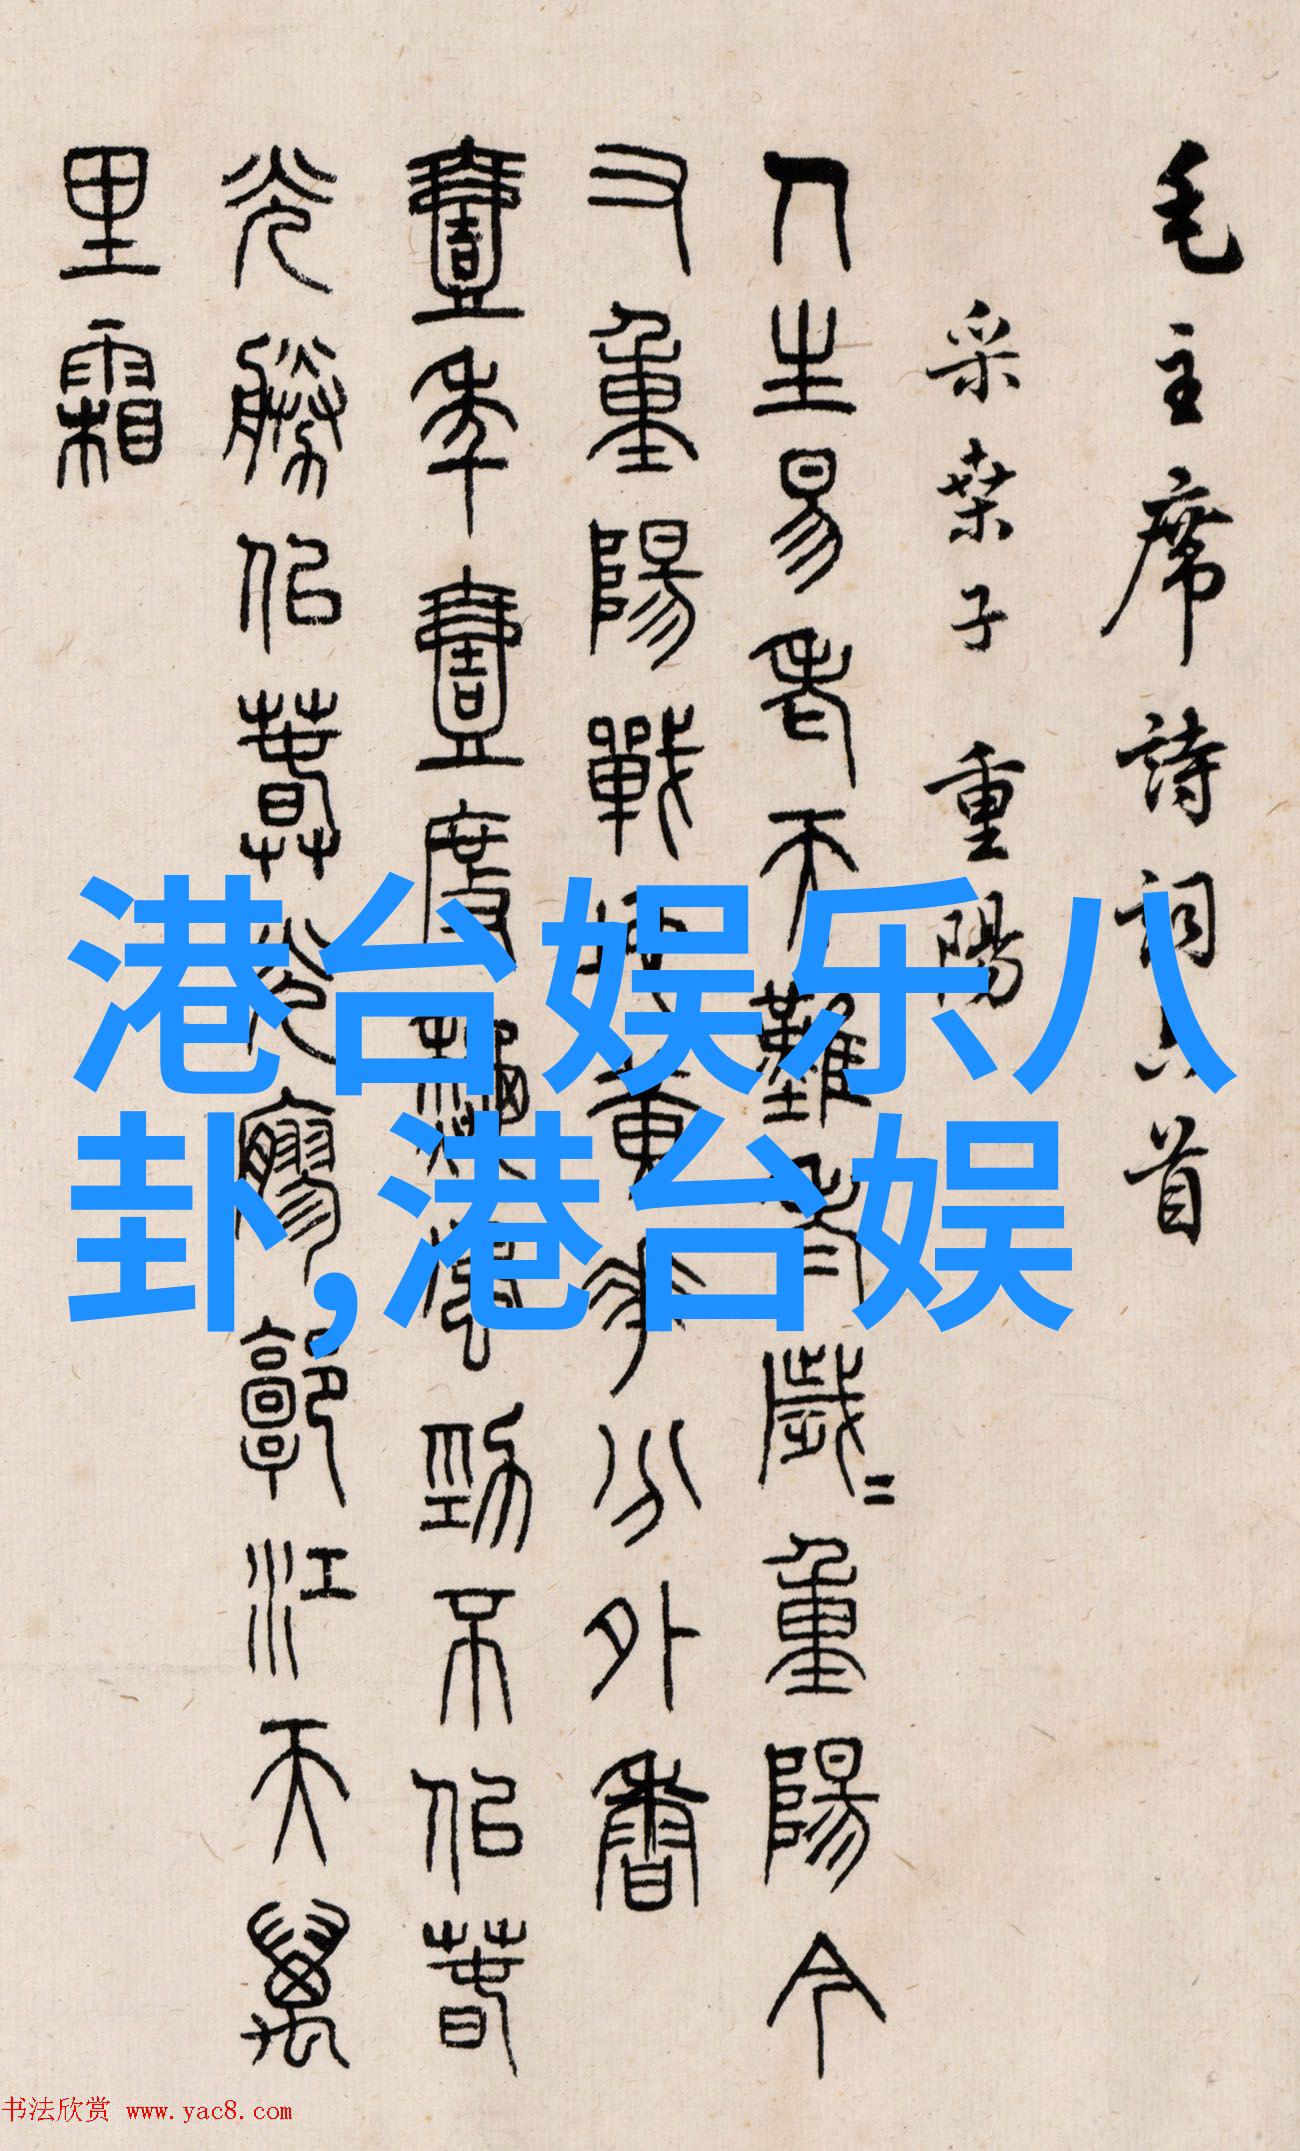 毛主席詩詞六首
采桑子 重陽
人生易老天難老歲=重陽今
又重陽戰地黃花分外香
壹年壹度秋風勁不佀春
光勝佀春光寥郭江天萬
里霜
港台娱乐八
卦,港台娱
书法欣赏 www.yac8.com